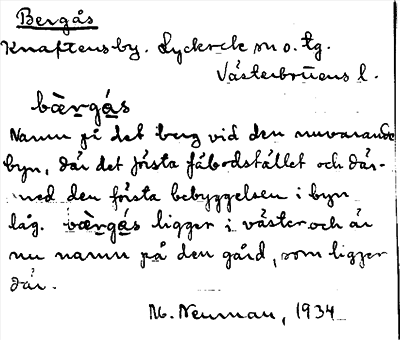 Bergås
Knaftens by. Lycksele sn o. tg.
Västerbottens l.
bærgás
Namn på det berg vid den nuvarande
byn, där det första fäbodstället och där-
med den första bebyggelsen i byn
låg. bærgás ligger i väster och är
nu namn på den gård, som ligger
där.
M. Neuman, 1934